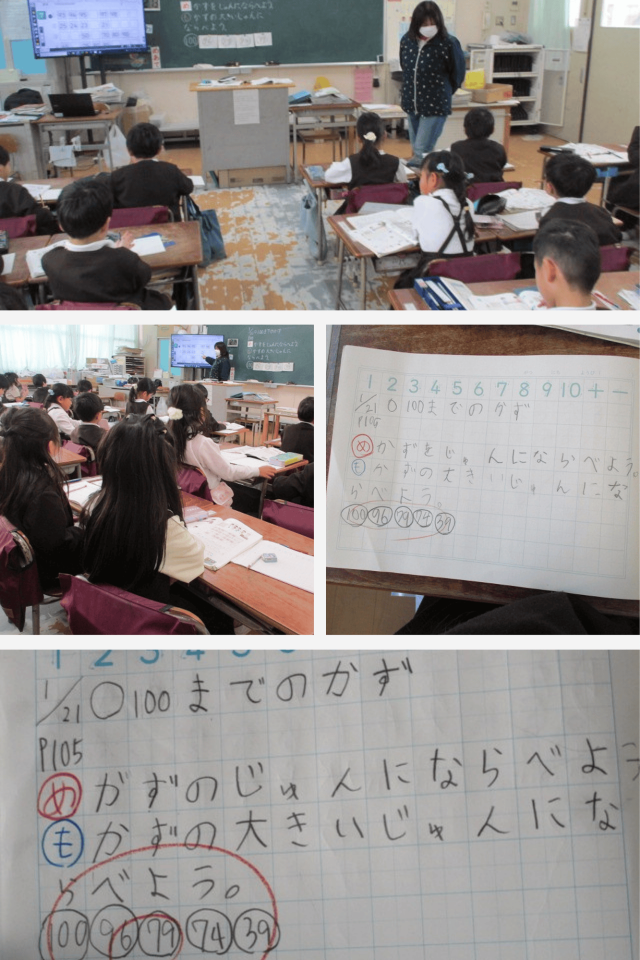 めかずをじゅんにならべよう
もかずの大きいじゅんに
ならべよう。
1 2 3 4 5 6 7 8 9 10 + −
1/21 ○ 100までのかず
P105
め かずをじゅんにならべよう。
も かずの大きいじゅんにな
らべよう。
100 96 79 74 39
1 2 3 4 5
1/21 ○ 100までのかず
P105
め がずのじゅんにならべよう
も かずの大きいじゅんにな
らべよう。
100 96 79 74 39